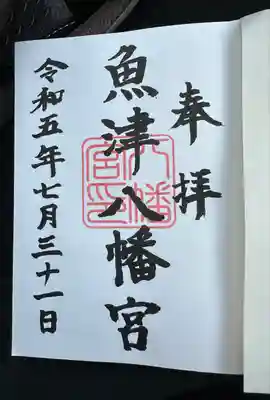 奉拝
魚津八幡宮
令和五年七月三十一日